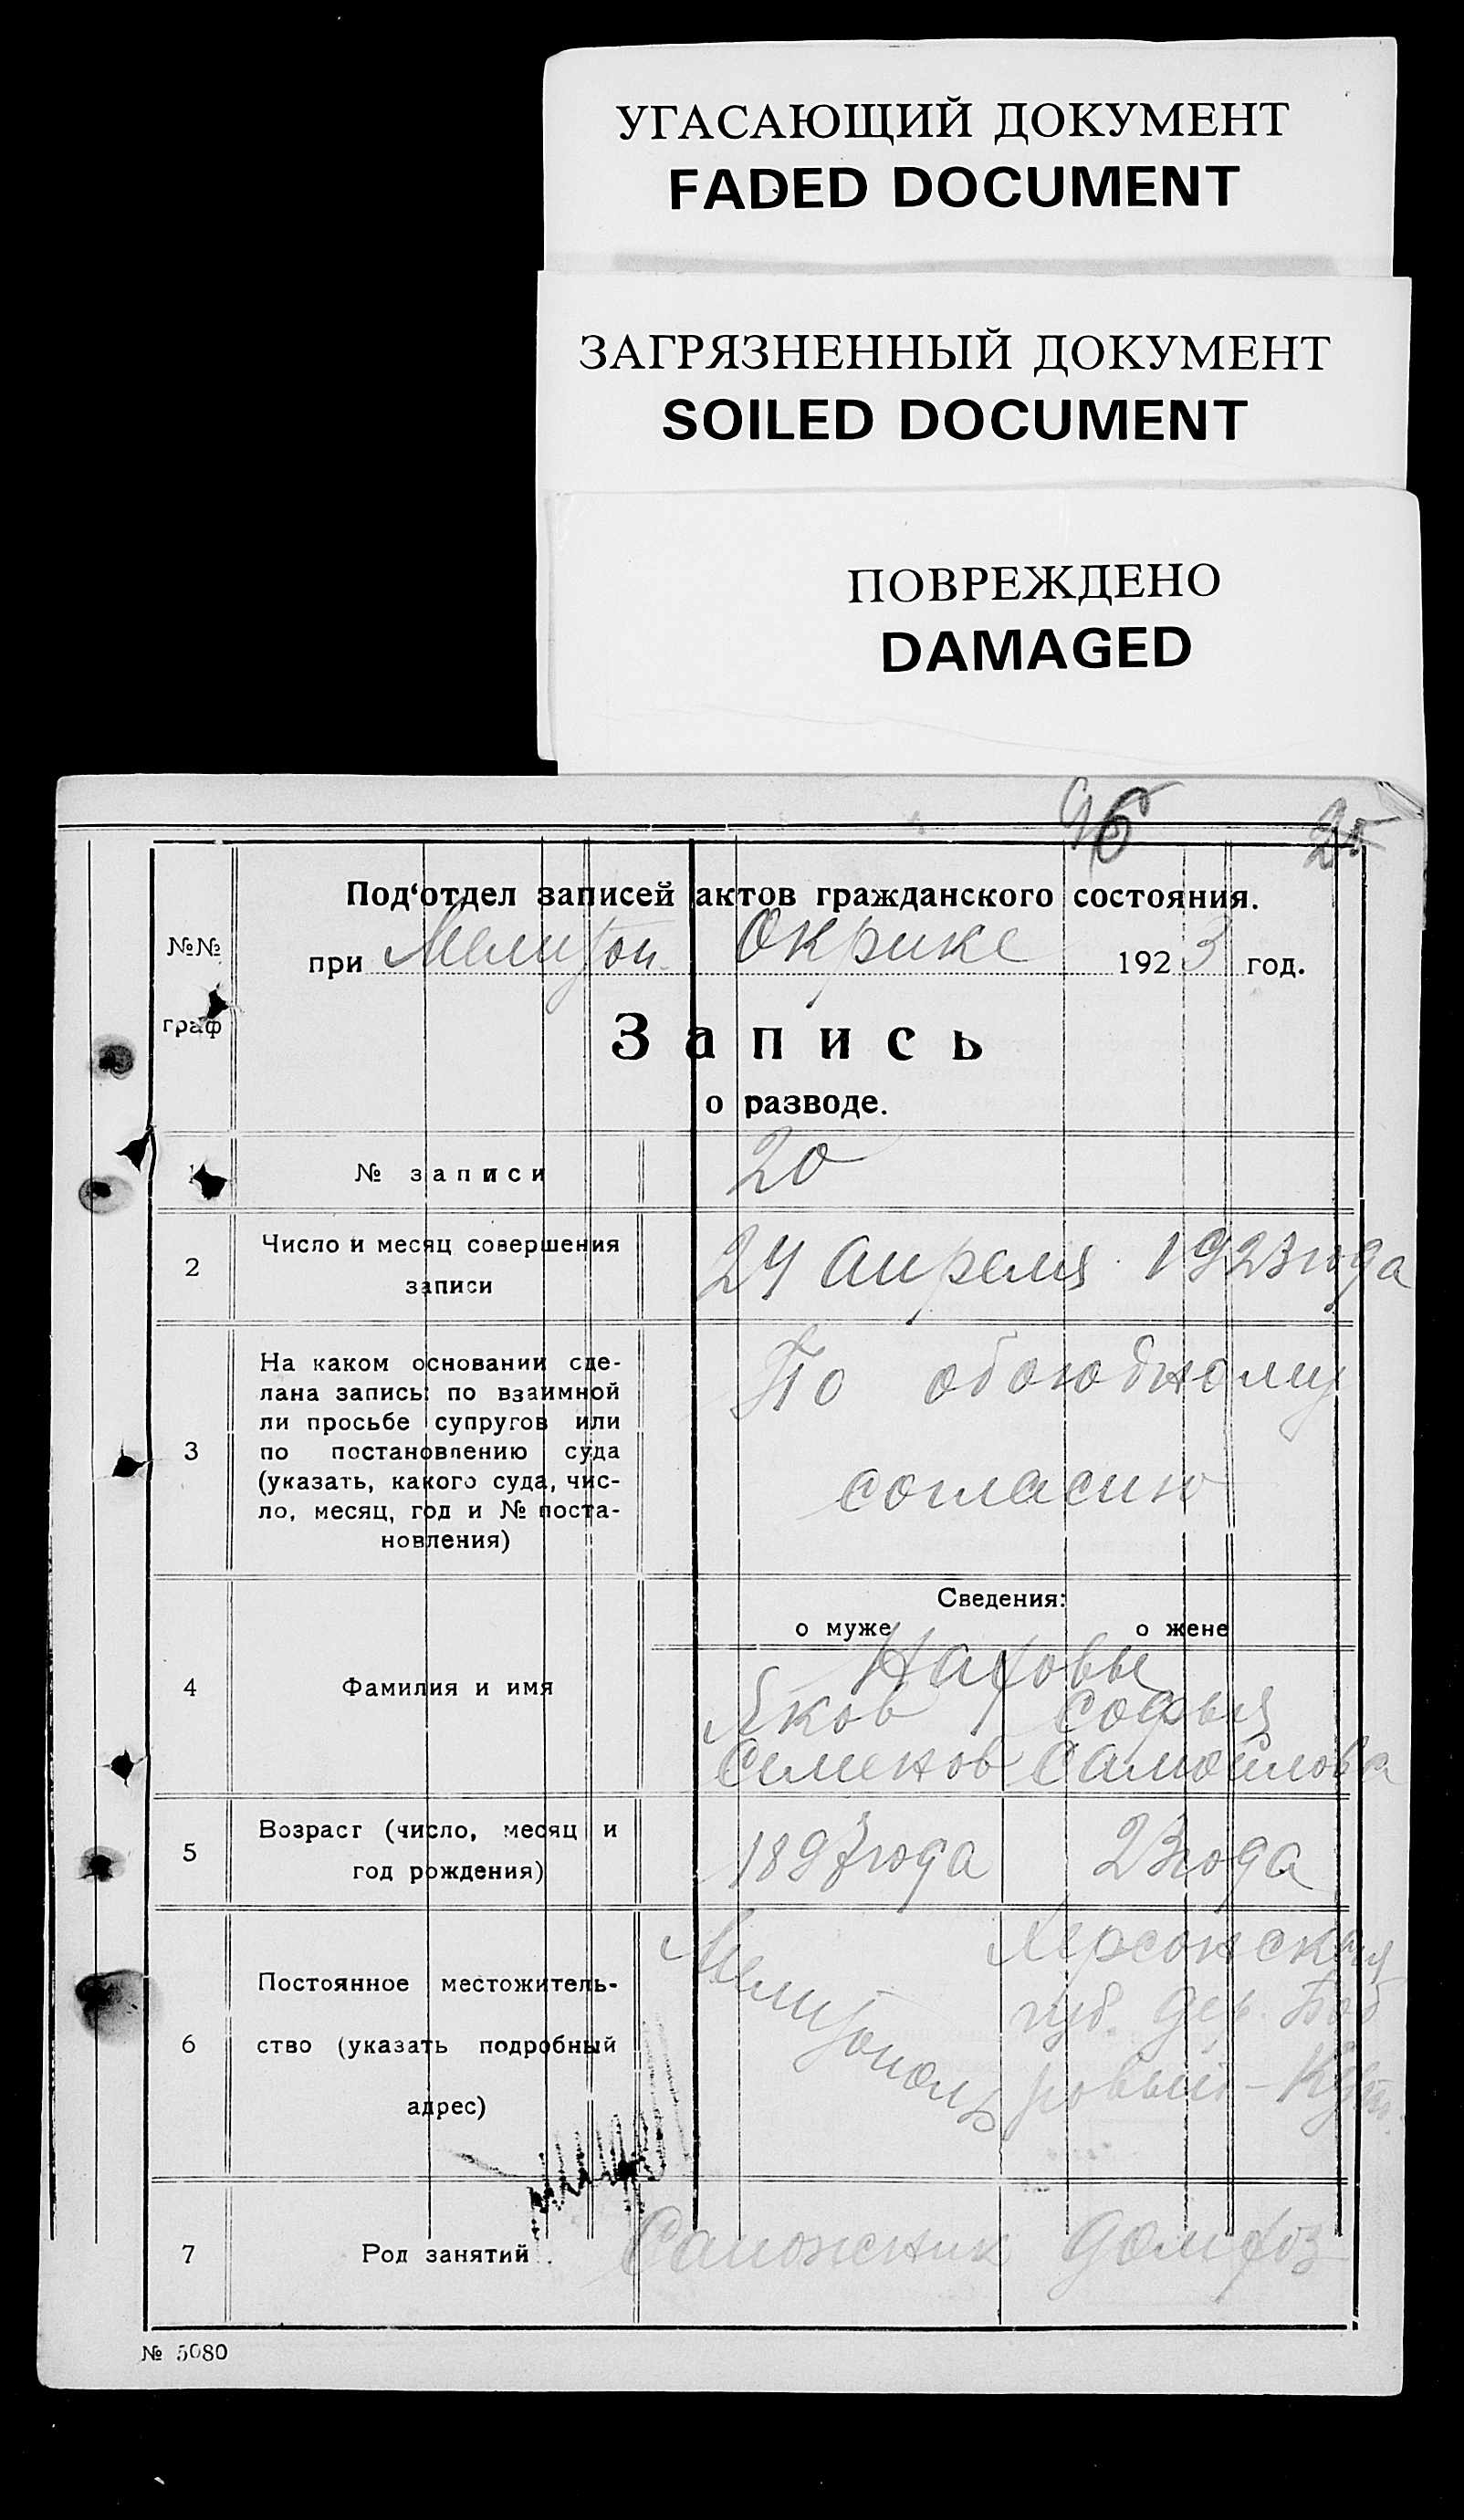 УГАСАЮЩИЙ ДОКУМЕНТ
FADED DOCUMENT
ЗАГРЯЗНЕННЫЙ ДОКУМЕНТ
SOILED DOCUMENT
ПОВРЕЖДЕНО
DAMAGED
96 25
Под‘отдел записей актов гражданского состояния.
№№
граф
при Мелитоп. Окрике 1923 год.
Запись
о разводе.
№ записи 20
2 Число и месяц совершения
записи
24 апреля 1923 года
3 На каком основании сде-
лана запись: по взаимной
ли просьбе супругов или
по постановлению суда
(указать, какого суда, чис-
ло, месяц, год и № поста-
новления)
По обоюдному
согласию
Сведения:
о муже о жене
4 Фамилия и имя
Яков Софья
Семенов Самойлова
5 Возраст (число, месяц и
год рождения)
1897 года 23 года
6 Постоянное местожитель-
ство (указать подробный
адрес)
Мелитополь
Херсонская
губ. дер. Боб
ровый-Кут.
7 Род занятий
Сапожник домхоз
№ 5080